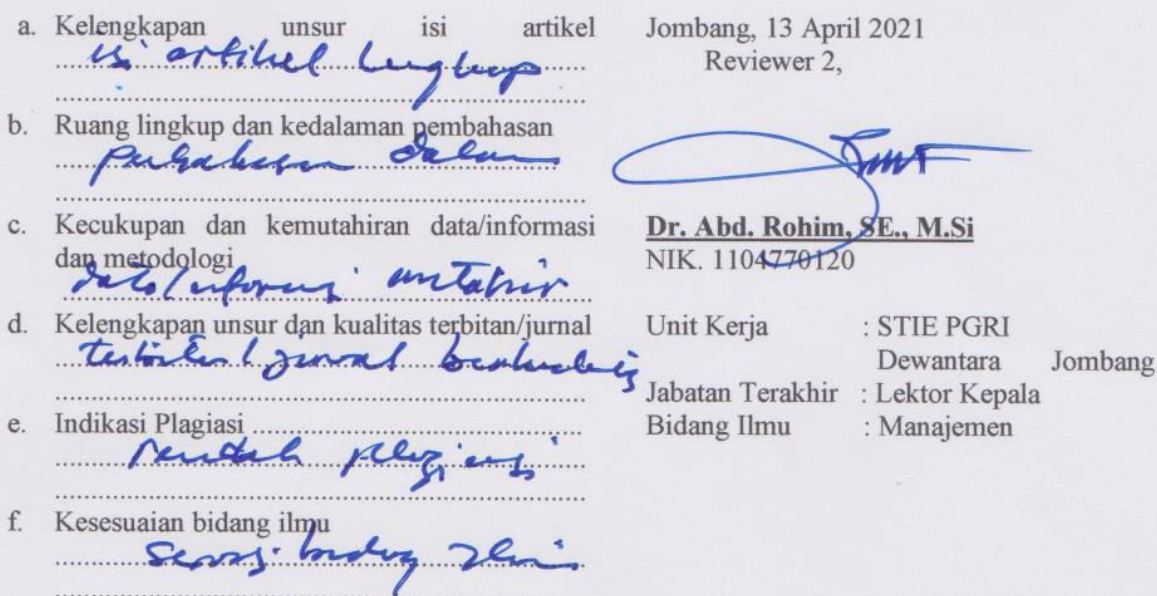 a. Kelengkapan unsur isi artikel
isi artikel lengkap
b. Ruang lingkup dan kedalaman pembahasan
pembahasan dalam
c. Kecukupan dan kemutahiran data/informasi
dan metodologi
data/informasi mutahir
d. Kelengkapan unsur dan kualitas terbitan/jurnal
terbitan/jurnal
e. Indikasi Plagiasi
rendah plagiasi
f. Kesesuaian bidang ilmu
sesuai bidang ilmu
Jombang, 13 April 2021
Reviewer 2,
Dr. Abd. Rohim, SE., M.Si
NIK. 1104770120
Unit Kerja : STIE PGRI
Dewantara Jombang
Jabatan Terakhir : Lektor Kepala
Bidang Ilmu : Manajemen